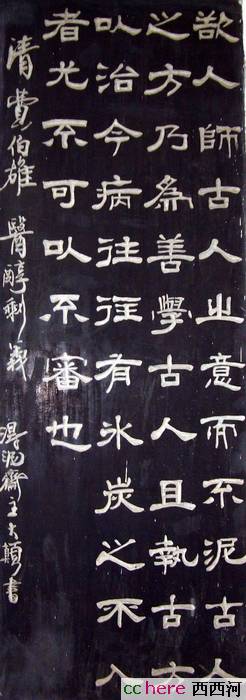 欲人師古人之意而不泥古人
之方乃為善學古人且執古方
以治今病往往有冰炭之不入
者尤不可以不審也
清費伯雄醫醇剩義
泥齋主大顛書
cchere 西西河